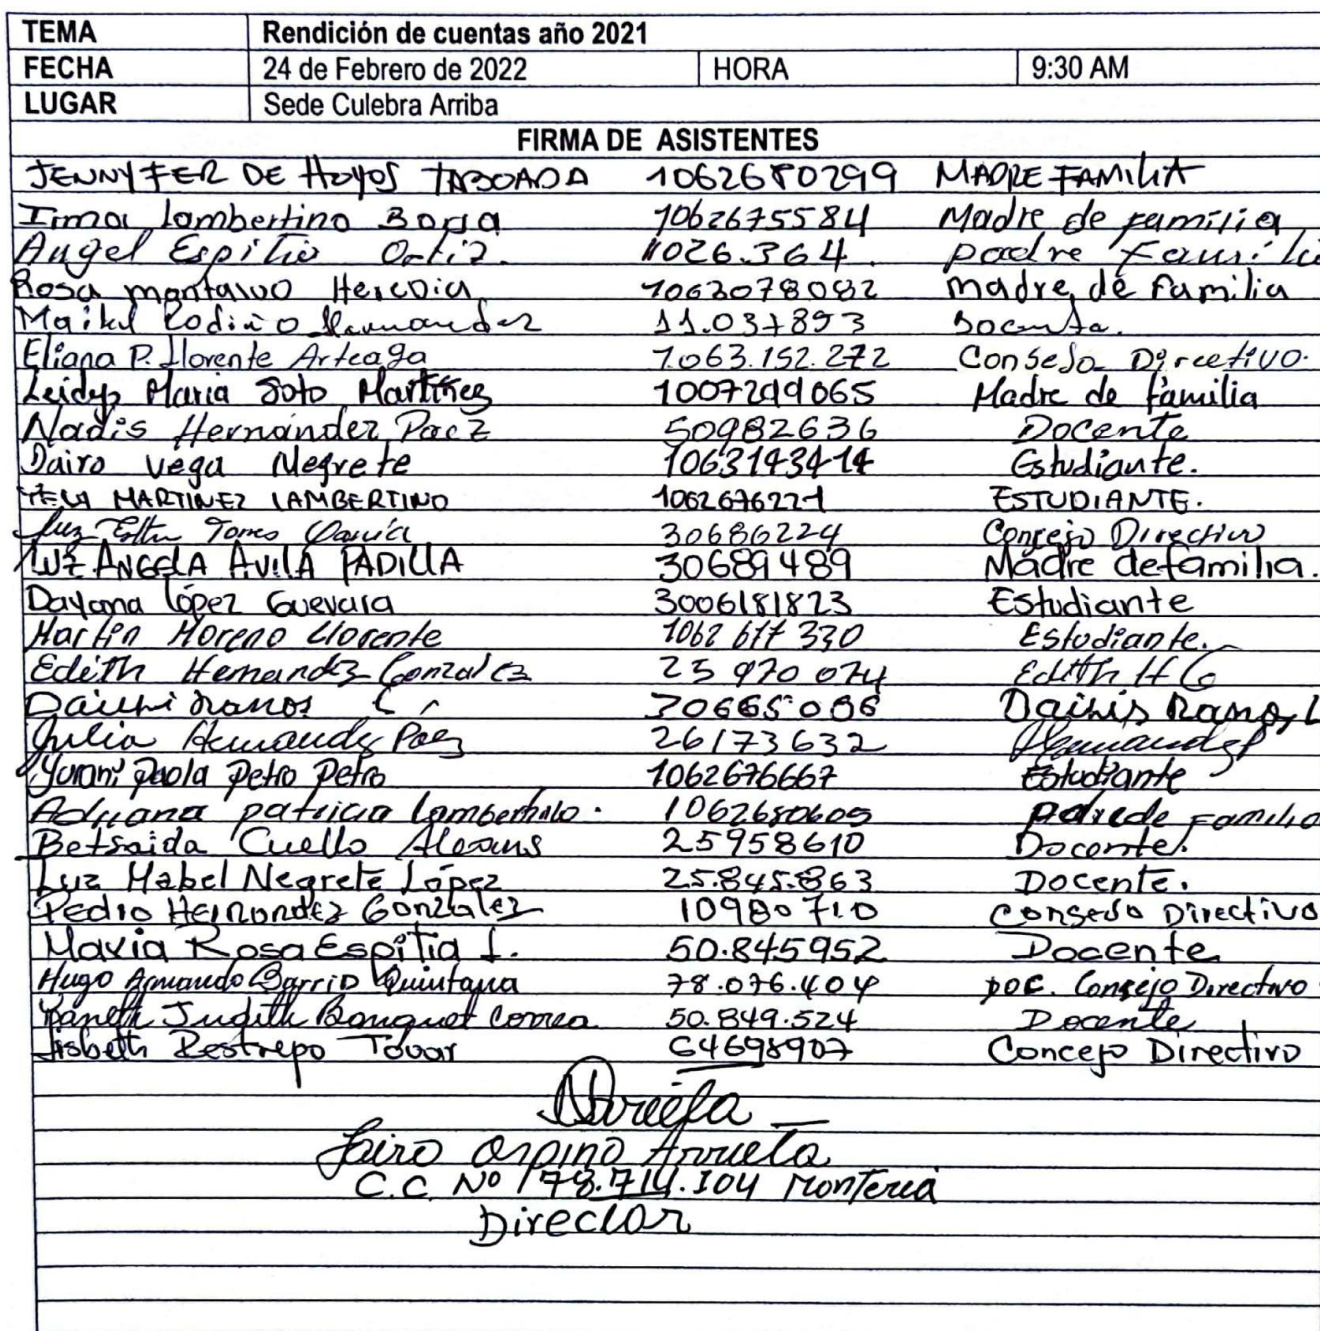 TEMA Rendición de cuentas año 2021
FECHA 24 de Febrero de 2022 HORA 9:30 AM
LUGAR Sede Culebra Arriba
FIRMA DE ASISTENTES
JENNYFER DE HOYOS TABOADA 1062680299 MADRE FAMILIA
Irma Lambertino Borja 1062675584 Madre de familia
Angel Espitia Ortiz. 11026.364. padre Famili
Rosa montalvo Heredia 1063078082 madre de familia
Maikel Hernandez 11.037893 Docente.
Eliana P. Llorente Arteaga 1.063.152.272 Consejo Directivo.
Leidys Maria Soto Martinez 1007299065 Madre de familia
Nadis Hernández Paez 50982636 Docente
Dairo Vega Negrete 1063143414 Estudiante.
MARTINEZ LAMBERTINO 1062676221 ESTUDIANTE.
Luz Torres 30686224 Concejo Directivo
LUZ ANGELA AVILA PADILLA 30689489 Madre de familia.
Dayana López Guevara 3006181823 Estudiante
Martin Moreno Llorente 1062 677 330 Estudiante.
Edith Hernandez Gonzalez 25 970 074 Edith H G
Ramos 30665006 Dainis Ramos L
Julia Hernandez Paez 26173632 Hernandez
Yurani Paola Petro Petro 1062676667 Estudiante
Adriana patricia Lambertino. 1062680605 padre de familia
Betsaida Cuello 25958610 Docente.
Luz Mabel Negrete López 25.845.863 Docente.
Pedro Hernandez Gonzalez 10980710 Consejo Directivo
Maria Rosa Espitia L. 50.845952 Docente
Hugo Armando Barrio Quintana 78.076.404 DOC. Consejo Directivo
Yaneth Judith Banquet Correa 50.849.524 Docente
Lisbeth Restrepo Tovar 64698907 Concejo Directivo
Jairo Ospino Arrieta
C.C. Nº 78.714.104 Monteria
Director